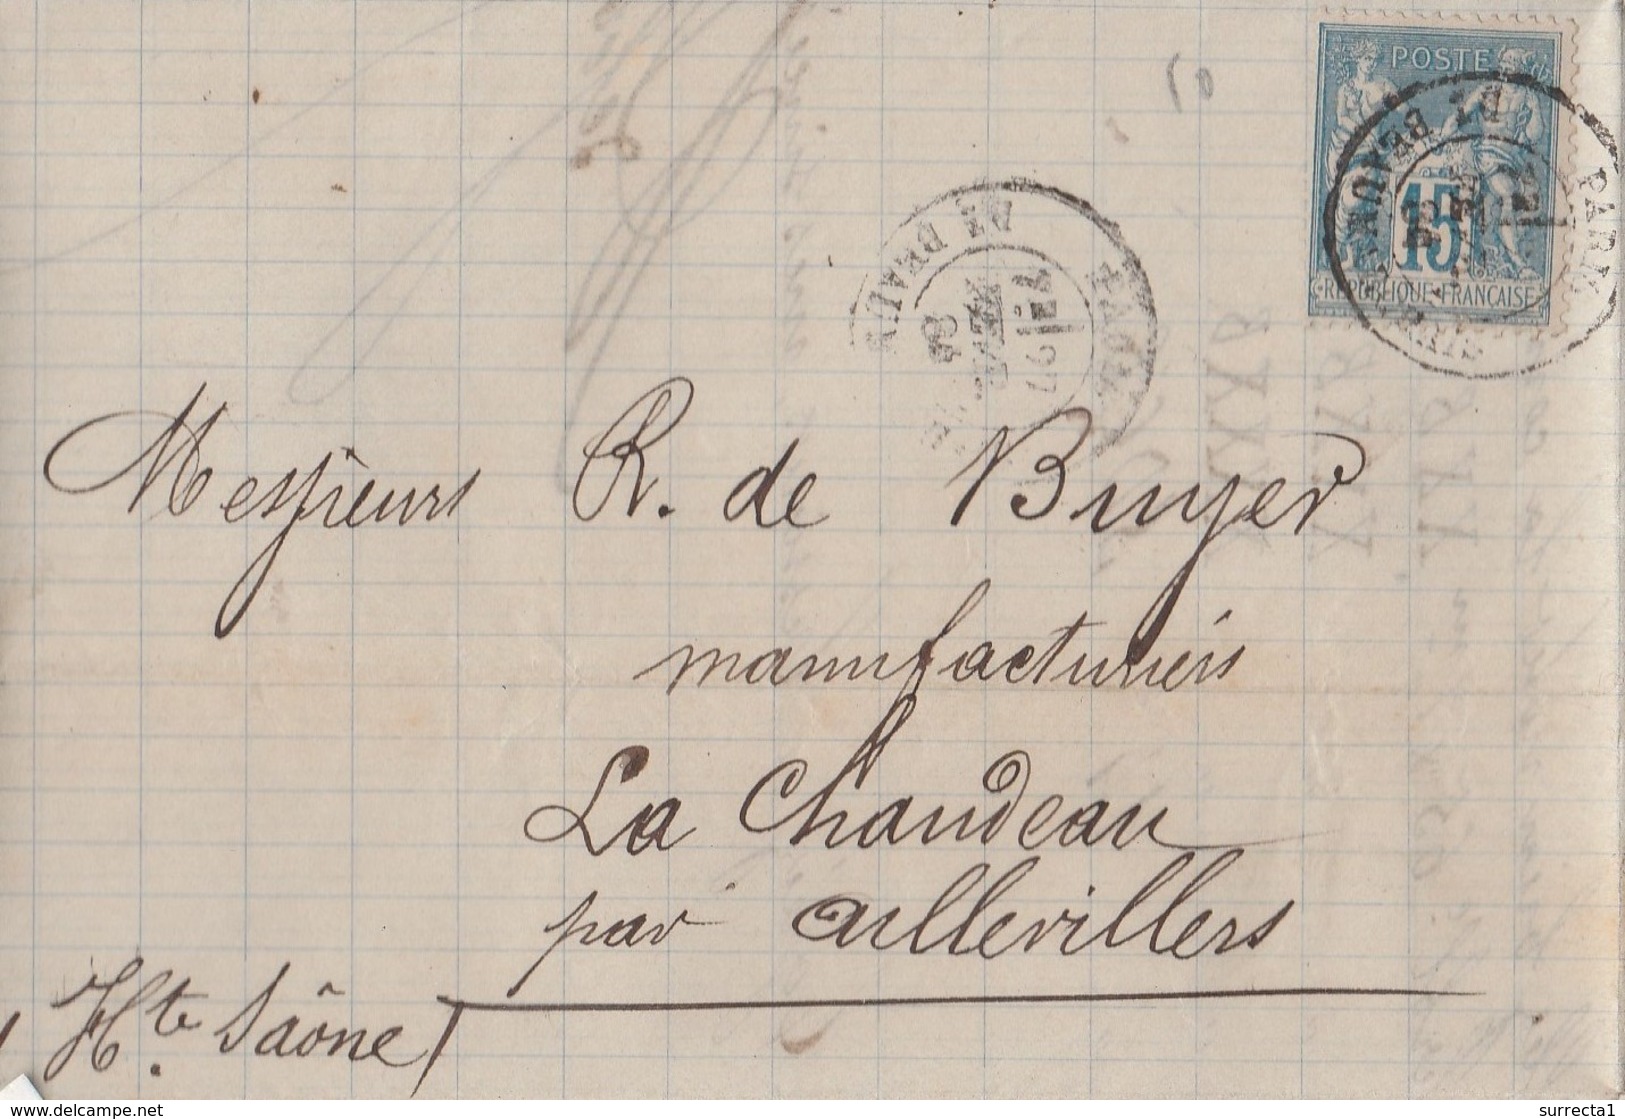 POSTE
15
REPUBLIQUE FRANÇAISE
PARIS
DE BEAUNE
PARIS
DE BEAUNE
84
Messieurs R. de Buyer
manufacturiers
La Chaudeau
par aillevillers
Hte Saône
www.delcampe.net
surrecta1